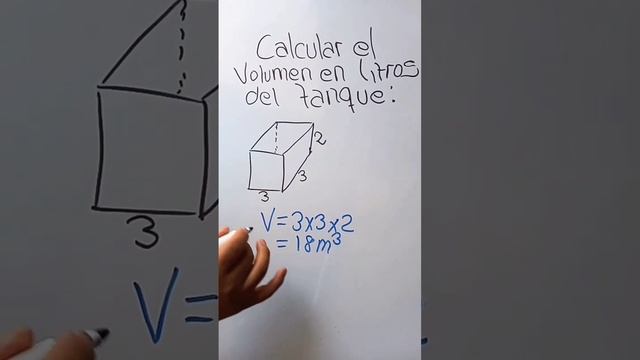 Calcular el
Volumen en litros
del tanque:
2
3
3
V=3x3x2
=18m³
3
V=